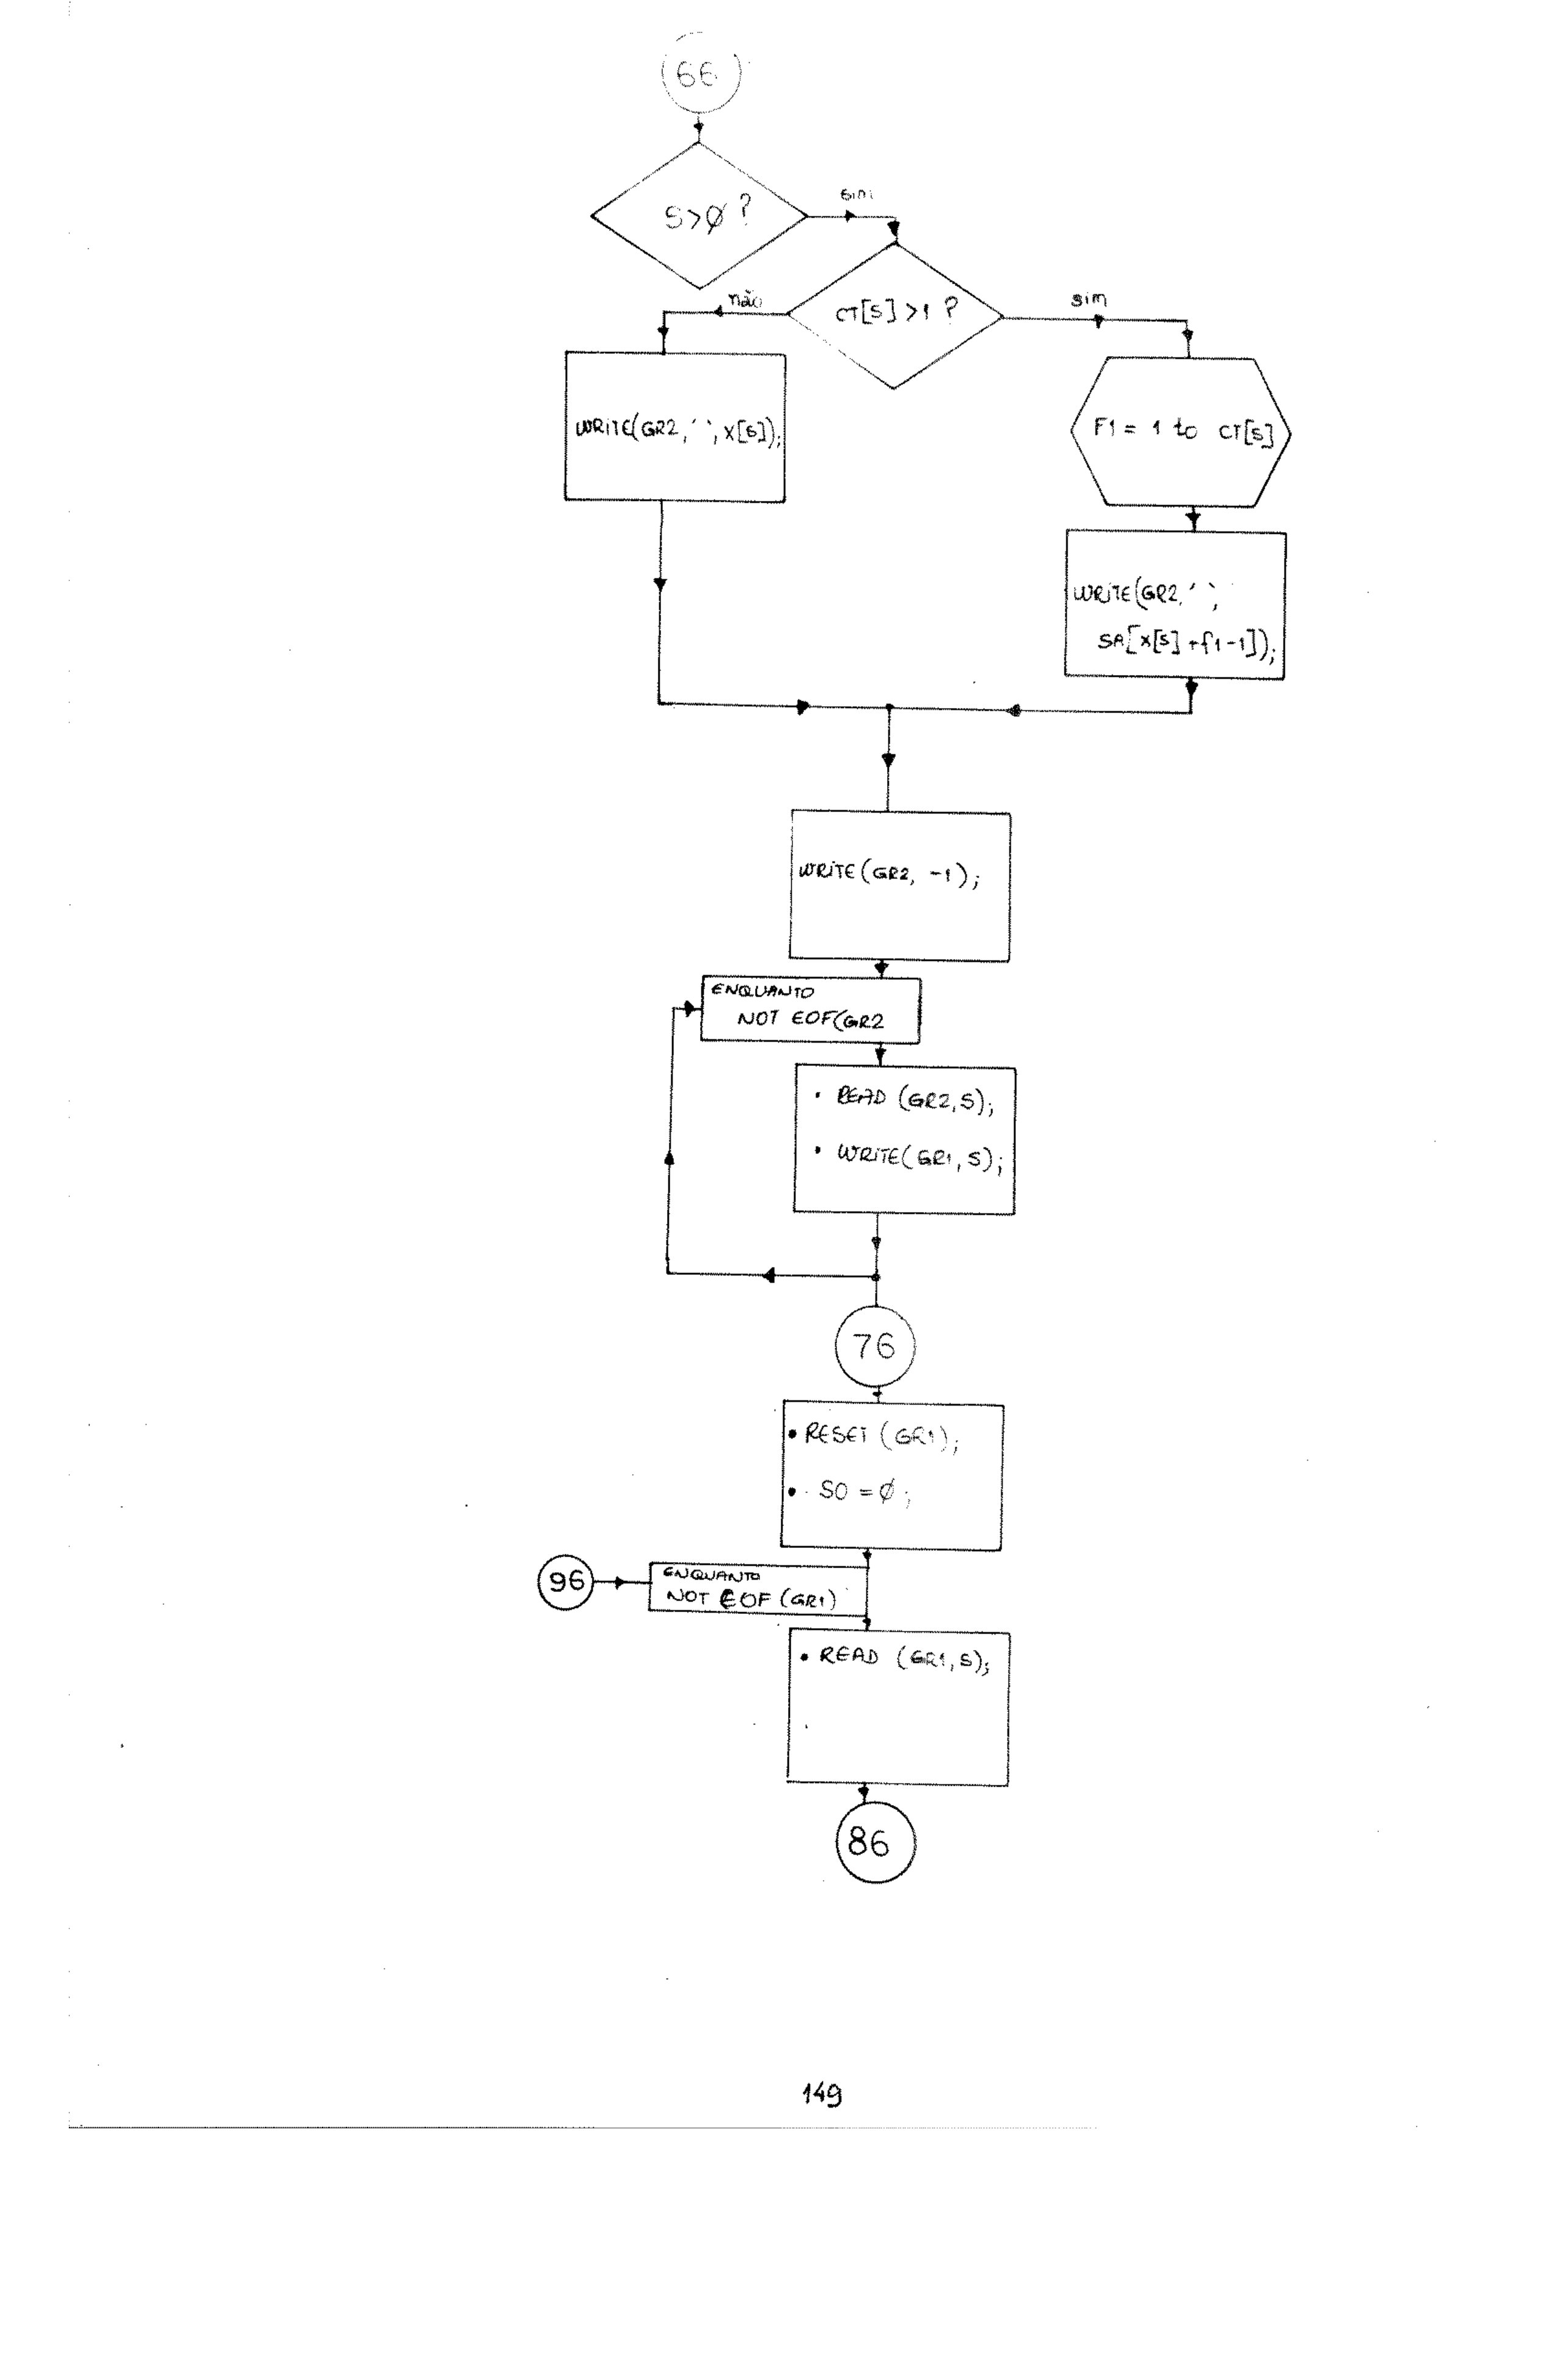 66
S>Ø ?
sim
CT[S] >1 ?
não
sim
WRITE(GR2,' ',X[S]);
F1 = 1 to CT[S]
WRITE(GR2,' ',
SA[X[S]+f1-1]);
WRITE(GR2, -1);
ENQUANTO
NOT EOF(GR2
• READ (GR2,S);
• WRITE(GR1,S);
76
• RESET (GR1);
• SO = Ø;
96
ENQUANTO
NOT EOF (GR1)
• READ (GR1,S);
86
149